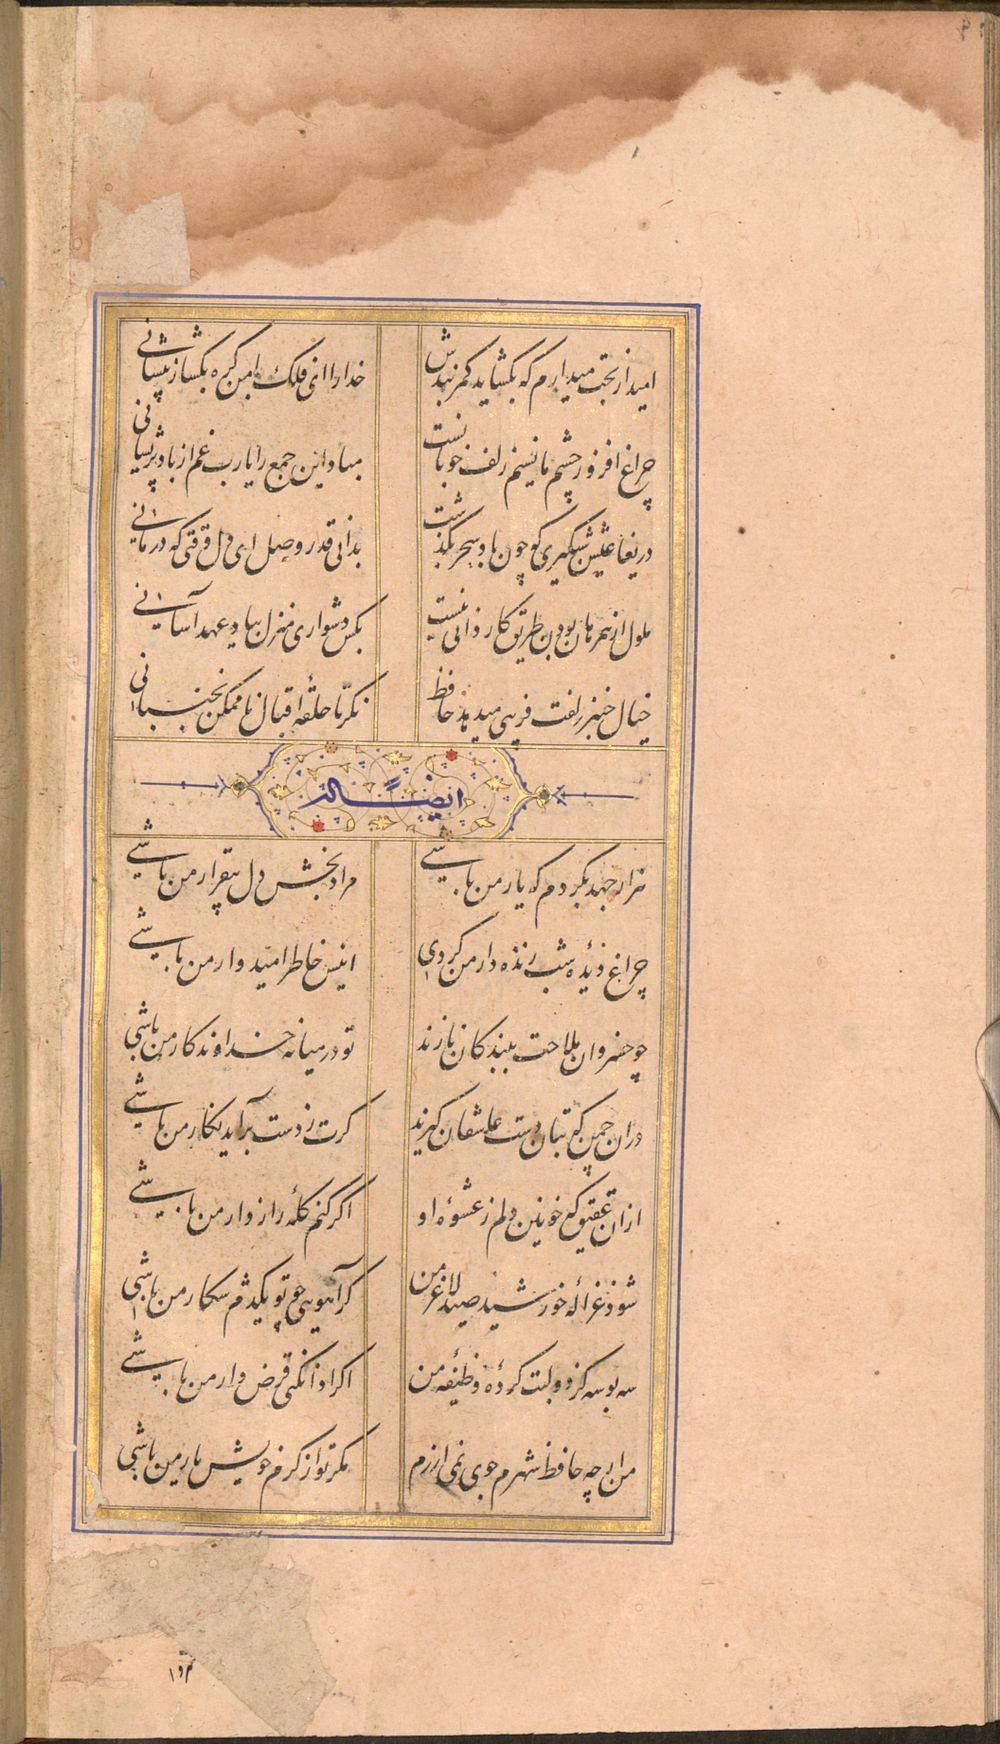 امید از بخت میدارم که بگشاید کمر بندش خدا را ای فلک با من گره بگشا ز پیشانی
چراغ افروز چشم ما نسیم زلف خوبانست مباد این جمع را یارب غم از باد پریشانی
دریغا عیش شبگیری کو چون باد سحر بگذشت بدانی قدر وصل ای دل وقتی که درمانی
ملول از همرهان بودن طریق کاردانی نیست بکش دشواری منزل بیاد عهد آسانی
خیال خنبر زلفت فریبی میدهد حافظ نگر تا حلقه اقبال ناممکن نجنبانی
ایضاً له
هزار جهد بکردم که یار من باشی مراد بخش دل بیقرار من باشی
چراغ دیده شب زنده دار من کردی انیس خاطر امیدوار من باشی
چو خسروان ملاحت ببندکان نازند تو در میانه خداوندکار من باشی
دران چمن که بتان دست عاشقان کیرند کرت ز دست برآید نکار من باشی
ازان عقیق که خونین دلم ز عشوه او اکر کنم کله رازدار من باشی
شود غزاله خورشید صید لاغر من کر آهویی چو تو یکدم شکار من باشی
سه بوسه کز دو لبت کرده وظیفه من اکر ادا نکنی قرض دار من باشی
من ار چه حافظ شهرم جوی نمی ارزم مکر تو از کرم خویش یار من باشی